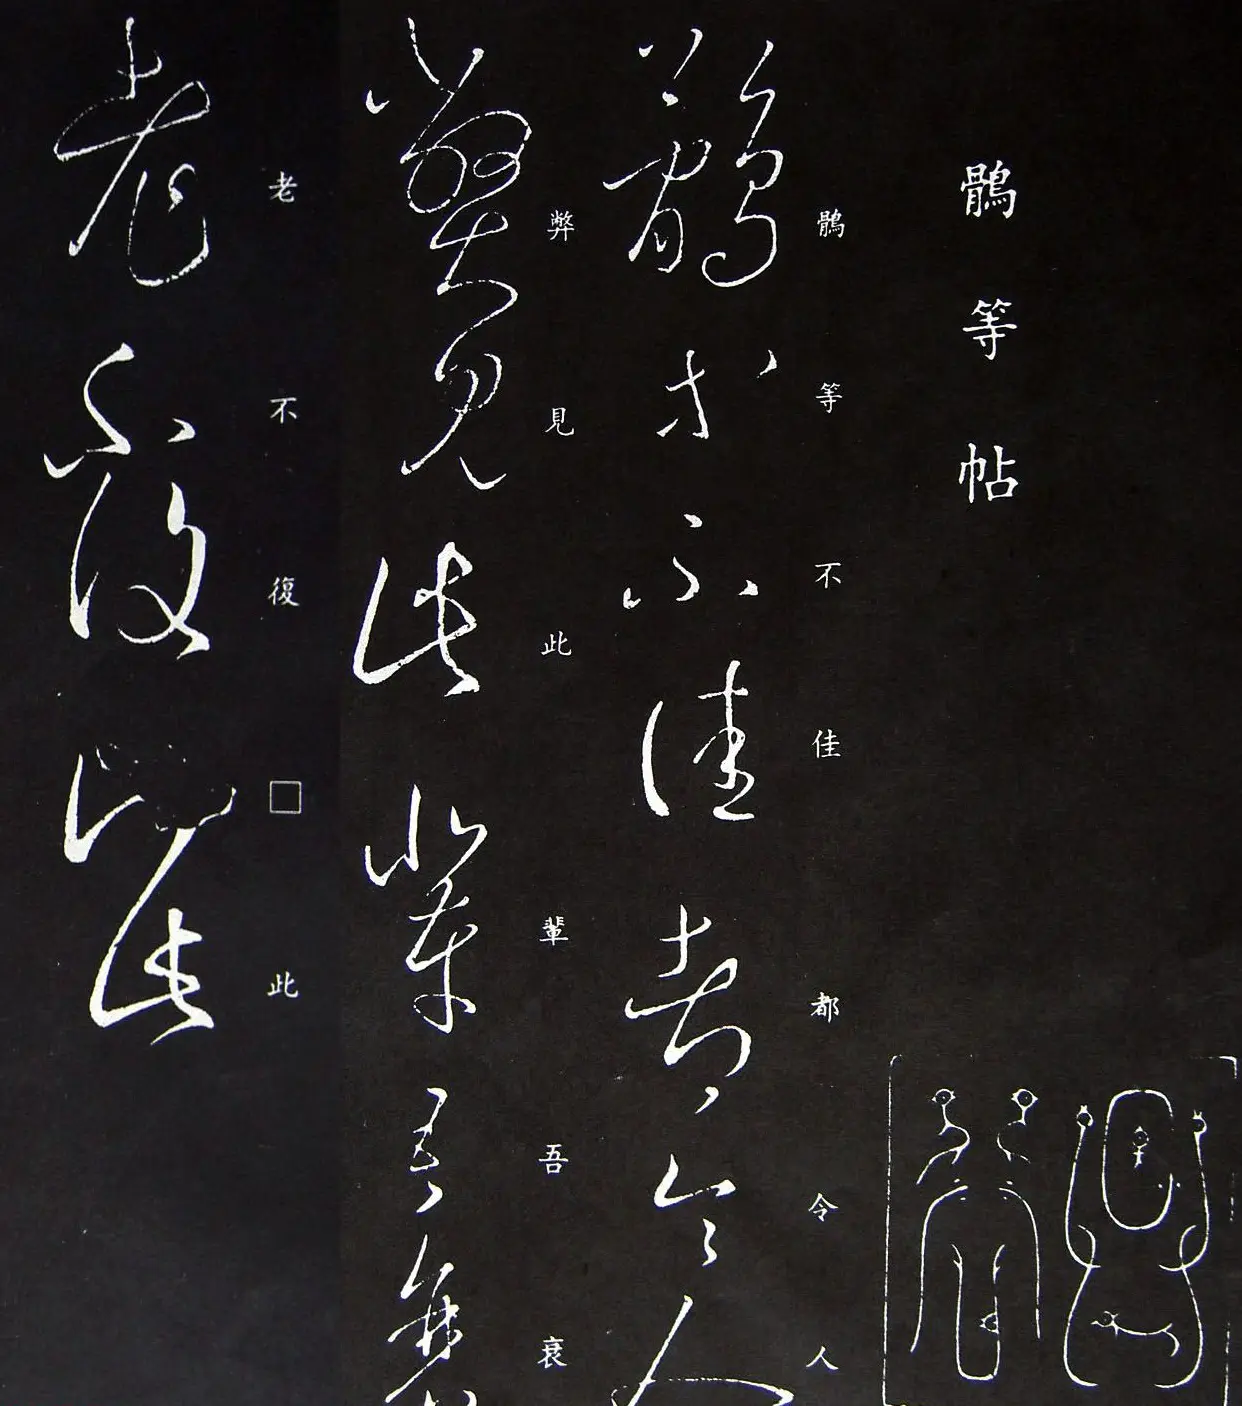 鶻等帖
鶻等不佳都令人
弊見此輩吾衰
老不復□此